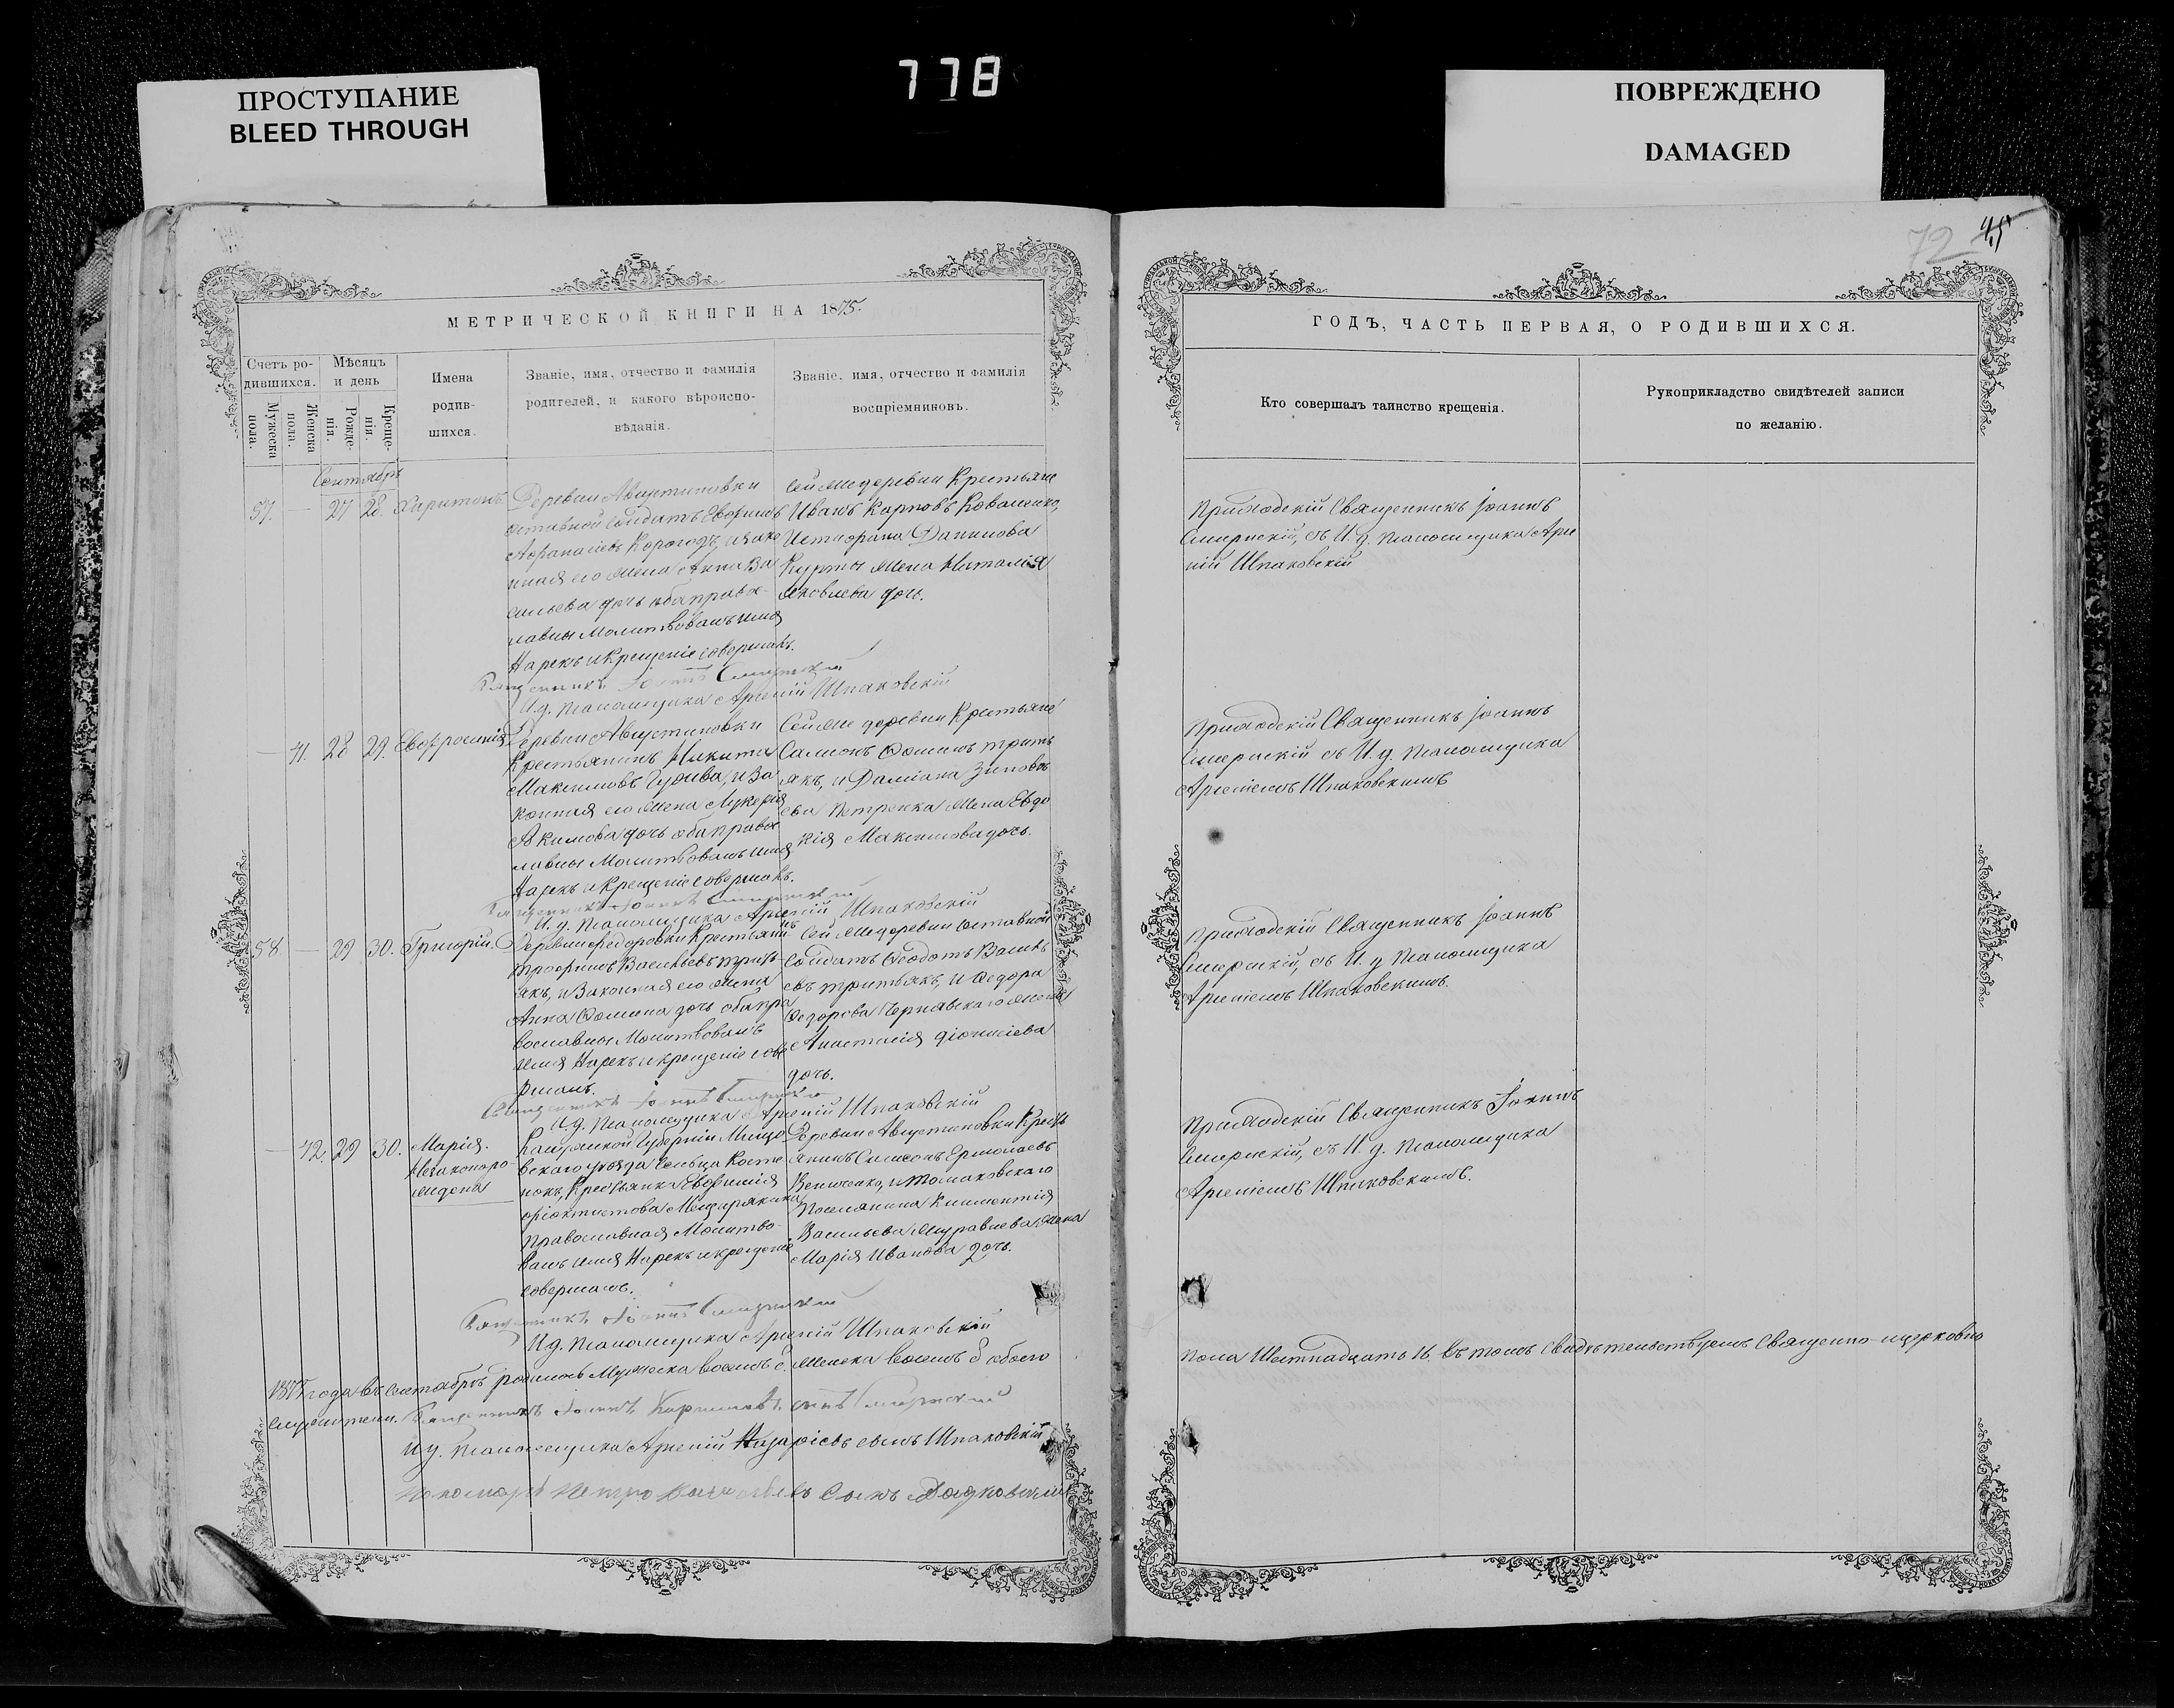 ПРОСТУПАНИЕ
BLEED THROUGH
778
ПОВРЕЖДЕНО
DAMAGED
МЕТРИЧЕСКОЙ КНИГИ НА 1875.
Счетъ ро-
дившихся.
Мужеска пола.
Женска пола.
Мѣсяцъ
и день
Рожде-
нія.
Креще-
нія.
Имена
родив-
шихся.
Званіе, имя, отчество и фамилія
родителей, и какого вѣроиспо-
вѣданія.
Званіе, имя, отчество и фамилія
воспріемниковъ.
Сентябрь
57. — 27 28. Харитонъ
Деревни Августиновки
отставной солдатъ Евфимъ
Афанасіевъ Корогодъ, и зако
нная его жена Анна Ва
сильева дочь оба право-
лавны Молитвовалъ имя
Нарекъ и крещеніе совершалъ.
Священникъ Іоаннъ
И.д. Псаломщика Арсеній Шпаковскій
Сей же деревни Крестьяне
Иванъ Карповъ Коваленко,
Данилова
Курты жена Наталія
Яковлева дочь.
— 41. 28 29. Евфросинія
Деревни Августиновки
Крестьянинъ Никита
Максимовъ и За
конная его жена Лукерія
Акимова дочь оба право
лавны Молитвовалъ имя
Нарекъ и крещеніе совершалъ.
Священникъ Іоаннъ
И.д. Псаломщика Арсеній Шпаковскій
Сей же деревни Крестьяне
Самсонъ Ѳоминъ трить
якъ, и Даміана Зиновь
ева Петренка жена Евдо
кія Максимова дочь.
58. — 29 30. Григорій.
Деревни Федоровки Крестьянинъ
Трофимъ Васильевъ трить-
якъ, и Законная его жена
Анна Ѳомина дочь оба пра
вославны Молитвовалъ
имя Нарекъ и крещеніе сове
ршалъ.
Священникъ Іоаннъ
И.д. Псаломщика Арсеній Шпаковскій
Сей же деревни отставной
солдатъ Ѳеодотъ Василь
евъ тритьякъ, и Ѳедора
Ѳедорова Чернявскаго жена
Анастасія Діонисіева
дочь.
— 42. 29 30. Марія.
Незаконоро-
ждена
Калужской Губерніи Мещо
вскаго уѣзда Сельца
Крестьянка Евфимія
Ѳеоктистова
Православная Молитво-
валъ имя Нарекъ и крещеніе
совершалъ.
Священникъ Іоаннъ
И.д. Псаломщика Арсеній Шпаковскій
Деревни Августиновки Кресть
янинъ Симеонъ Ермолаевъ
и Томаковскаго
Поселянина Климентія
Васильева Журавлева жена
Марія Иванова дочь.
1875 года въ Сентябрѣ родилось Мужеска восемь 8. женска восемь 8 обоего
служители. Священникъ Іоаннъ
и.д. Псаломщика Арсеній Назаріевъ сынъ Шпаковскій
Пономарь Петро сынъ
72
45
ГОДЪ, ЧАСТЬ ПЕРВАЯ, О РОДИВШИХСЯ.
Кто совершалъ таинство крещенія.
Рукоприкладство свидѣтелей записи
по желанію.
Приходскій Священникъ Іоаннъ
съ И.д. Псаломщика Арсе
ній Шпаковскій
Приходскій Священникъ Іоаннъ
съ И.д. Псаломщика
Арсеніемъ Шпаковскимъ
Приходскій Священникъ Іоаннъ
съ И.д Псаломщика
Арсеніемъ Шпаковскимъ.
Приходскій Священникъ Іоаннъ
съ И.д. Псаломщика
Арсеніемъ Шпаковскимъ.
пола Шестнадцать 16. въ томъ Свидѣтельствуемъ Священно-церковно